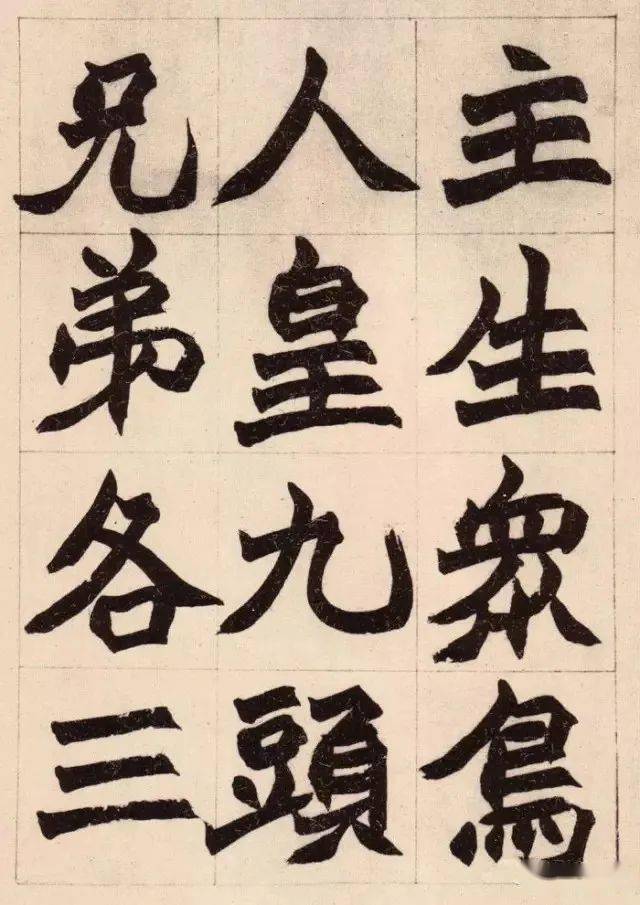 主生衆鳥
人皇九頭
兄弟各三